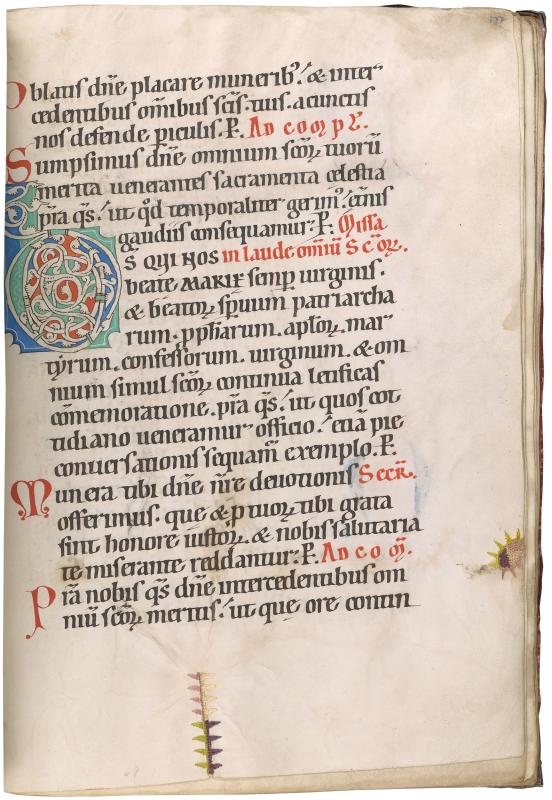 Oblatis dn̄e placare munerib⁹. & inter
cedentibus om̄ibus sc̄is tuis. a cunctis
nos defende piculis. P. AD COM̄PL̄.
Sumpsimus dn̄e omnium sc̄oꝝ tuoꝝ
merita venerantes sacramenta celestia
p̄ra q̄s. ut qd̄ temporaliter gerim⁹. et̄nis
gaudiis consequamur. P. Missa
D̄S QUI NOS in laude om̄iū Sc̄oꝝ.
beate MARIE semp̄ virginis.
& beatoꝝ sp̄uum patriarcha
rum. pphāarum. aplōꝝ. mar
tyrum. confessorum. virginum. & om
nium simul sc̄oꝝ continua letificas
com̄emoratione. p̄ra q̄s. ut quos cot
tidiano veneramur officio. etiā pie
conversationis sequam̄ exemplo. P.
Munera tibi dn̄e nr̄e devotionis Secr̄.
offerimus. que & p tuoꝝ tibi grata
sint honore iustoꝝ. & nobis salutaria
te miserante reddantur. P. AD CO M̄.
Pr̄a nobis q̄s dn̄e intercedentibus om
niū sc̄oꝝ meritis. ut que ore contin